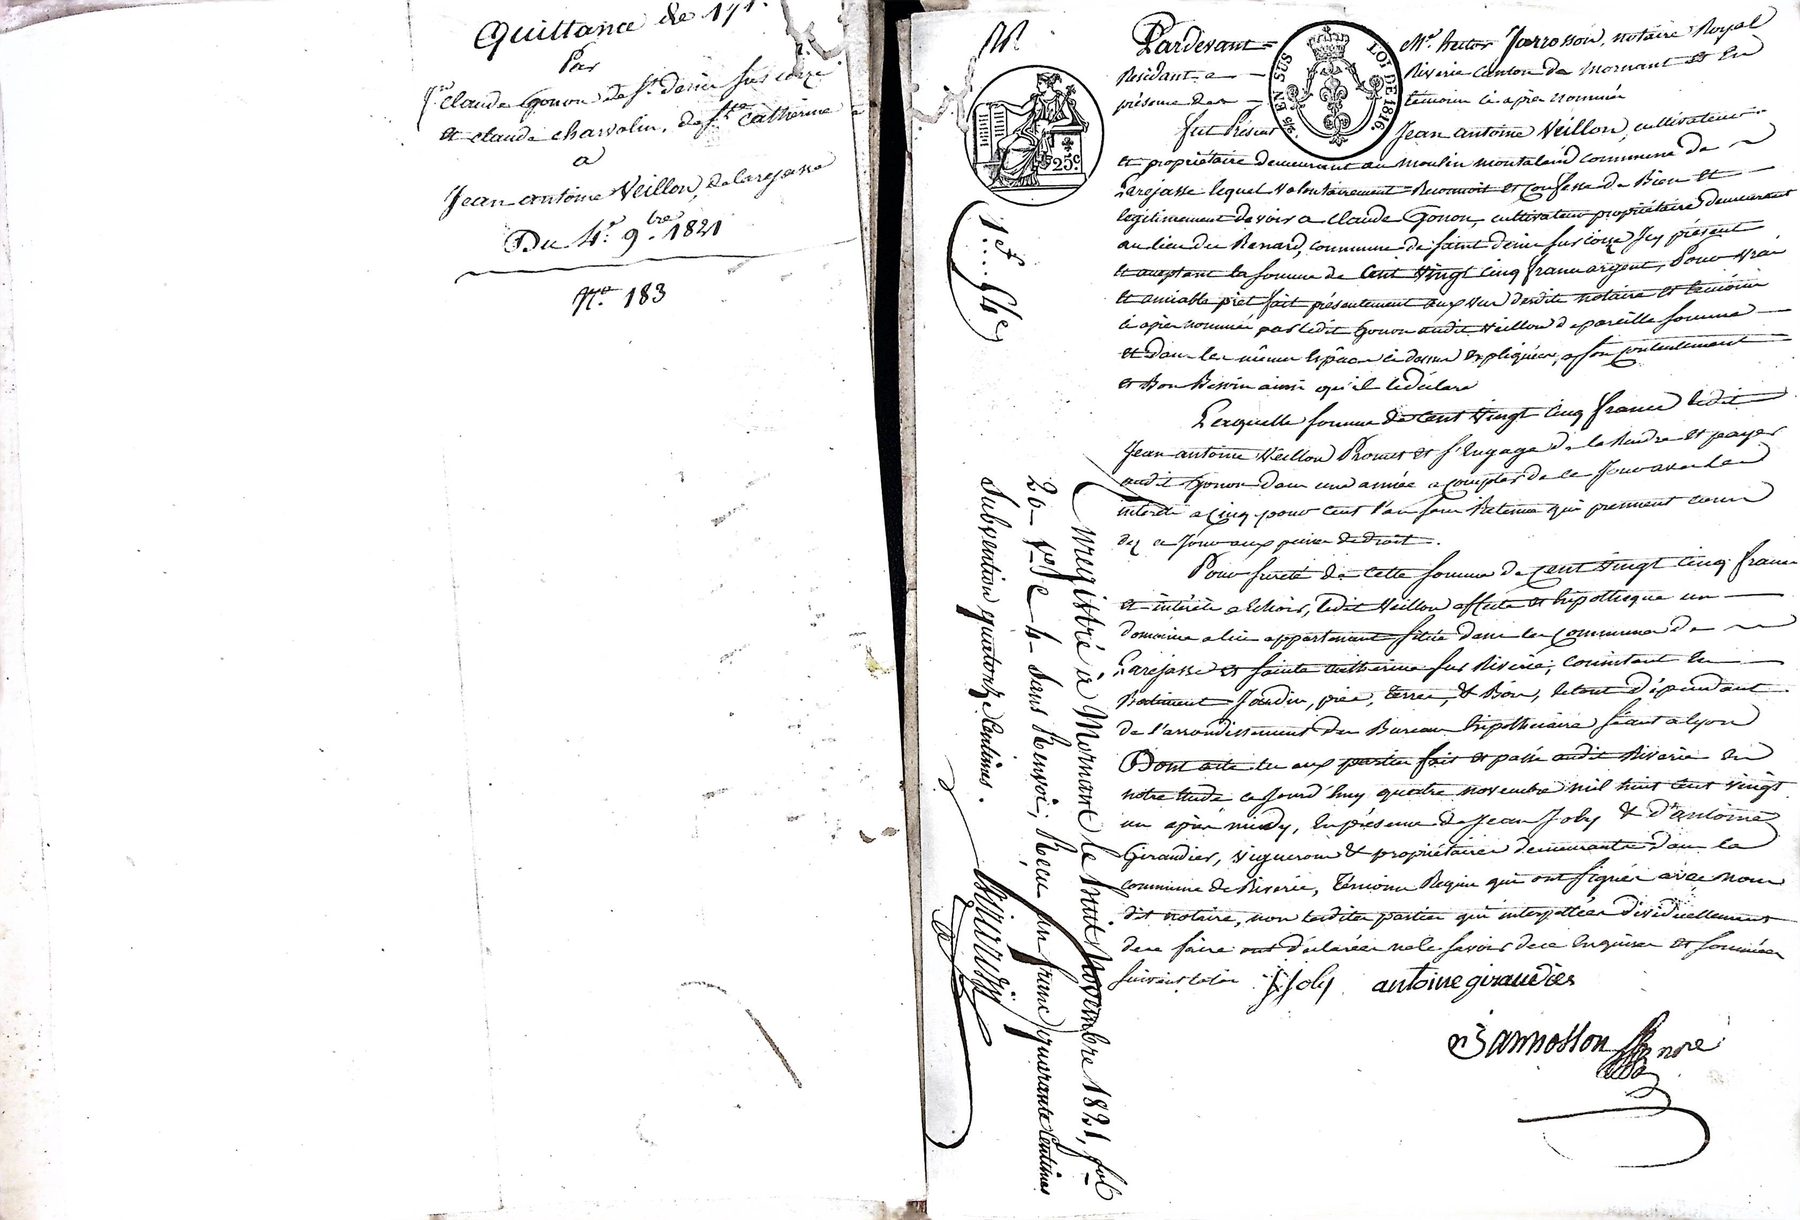 Quittance de 171.
Par
Claude Gonon de St. denis sur coize
et claude charvolin, de Ste. Catherine
a
Jean antoine Veillon, de Larajasse
Du 4. 9.bre 1821
N.o 183
Pardevant Me. hector Jarrosson, notaire Royal
Résidant a Riverie canton de Mornant Et En
présence des temoins ci après nommés
EN SUS
LOI DE 1816.
25c.
fut Présent Jean antoine Veillon, cultivateur
et propriétaire demeurant au moulin montaland commune de
Larajasse lequel volontairement Reconnoit et Confesse de Bien et
légitimement devoir a Claude Gonon, cultivateur propriétaire demeurant
au lieu du Renard, commune de saint denis sur coize Icy présent
et acceptant la somme de Cent Vingt Cinq francs argent, Pour vrai
et amiable prêt fait présentement aux vu desdit notaire et témoins
ci après nommés par ledit Gonon audit Veillon de pareille somme
et dans les mêmes Espèces ci dessus expliquées, a son contentement
et Bon Besoin ainsi qu'il le déclare
Laquelle somme de Cent Vingt Cinq francs ledit
Jean antoine Veillon Promet et s'Engage de la Rendre et payer
audit Gonon dans une année a compter de ce Jour avec les
intérêts a Cinq pour cent l'an sans Retenue qui prennent cours
dez ce Jour aux peines de droit.
Pour sureté de Cette somme de Cent Vingt Cinq francs
et intérêts a Echoir, ledit Veillon affecte et hipothèque un
domaine a lui appartenant situé dans les Communes de
Larajasse et sainte Catherine sur Riverie, consistant En
Batiment Jardin, prés, terres, & Bois, le tout dépendant
de l'arrondissement du Bureau hipothécaire séant a lyon
Dont acte lu aux parties fait et passé audit Riverie En
notre Etude ce Jourd'huy quatre novembre mil huit cent vingt
un après midy, En présence de Jean Joly & d'antoine
Giraudier, vignerons & propriétaires demeurants dans la
commune de Riverie, Témoins Requis qui ont signés avec nous
dit notaire, non lesdites parties qui interpellées dividuellement
de ce faire ont déclarées ne le savoir de ce Enquises et sommées
suivant la loi
J Joly antoine giraudier
Jarrosson nre
1.f .. 54c
Enregistré à Mornant le huit Novembre 1821, fol
20 Vo C 4 Sans Renvoi; Reçu un franc quarante Centimes
Subvention quatorze Centimes.